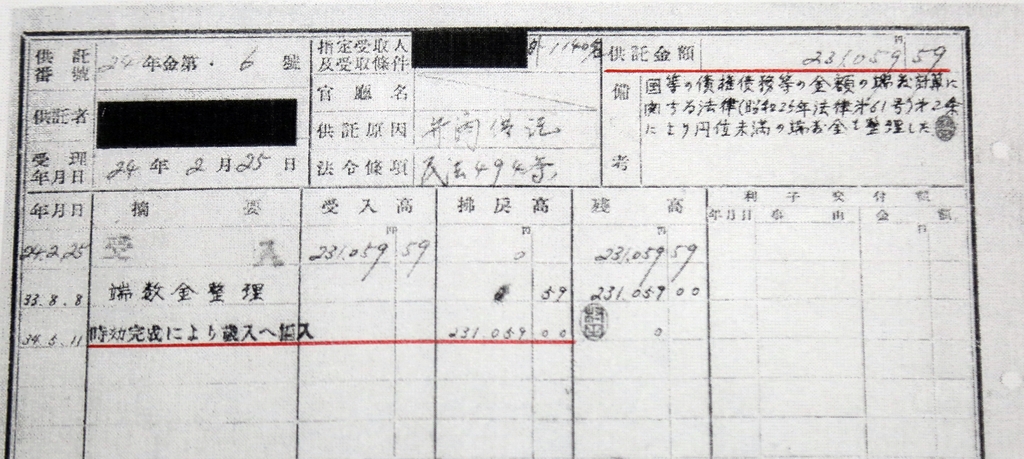 供託番號 24年金第・6號
指定受取人及受取條件 外1140名
供託金額 円 231,059 59
供託者
官廳名
供託原因 弁済供託
受理年月日 24年2月25日
法令條項 民法494条
備考
国等の債権債務等の金額の端数計算に
関する法律(昭和25年法律第61号)第2条
により円位未満の端数金を整理した
年月日 摘要 受入高 拂戻高 残高 利子交付額
年月日 事由 金額
円 円 円 円
24.2.25 受入 231,059 59 0 231,059 59
33.8.8 端数金整理 59 231,059 00
34.5.11 時効完成により歳入へ納入 231,059 00 0